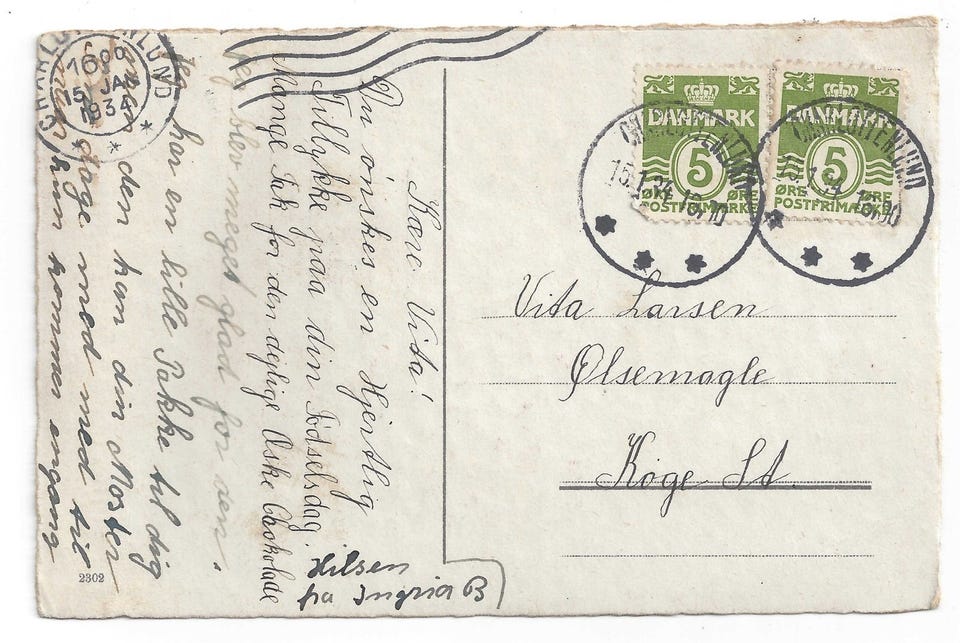 CHARLOTTENLUND
1600
15 JAN
1934
DANMARK
5
ØRE ØRE
POSTFRIMÆRKE
DANMARK
5
ØRE ØRE
POSTFRIMÆRKE
CHARLOTTENLUND
15.1.34 16.00
CHARLOTTENLUND
15.1.34 16.00
Kære Vita!
Du ønskes en Hjertlig
Tillykke paa din Fødselsdag.
Mange Tak for den dejlige Æske Chokolade
jeg blev meget glad for den.
Jeg har en lille Pakke til dig
den kan din Moster
tage med med til
hun kommer engang
Hilsen
fra Ingrid B
Vita Larsen
Ølsemagle
Køge St.
2302